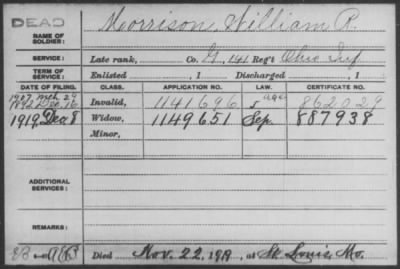 DEAD
NAME OF SOLDIER: Morrison, William R.
SERVICE: Late rank, Co. G, 141 Reg't Ohio Inf
TERM OF SERVICE: Enlisted , 1 Discharged , 1
DATE OF FILING. CLASS. APPLICATION NO. LAW. CERTIFICATE NO.
1892 Dec. 16 Invalid, 1141696 age 862029
1919, Dec 8 Widow, 1149651 Sep. 887938
Minor,
ADDITIONAL SERVICES:
REMARKS:
Died Nov. 22, 1919, at St. Louis, Mo.